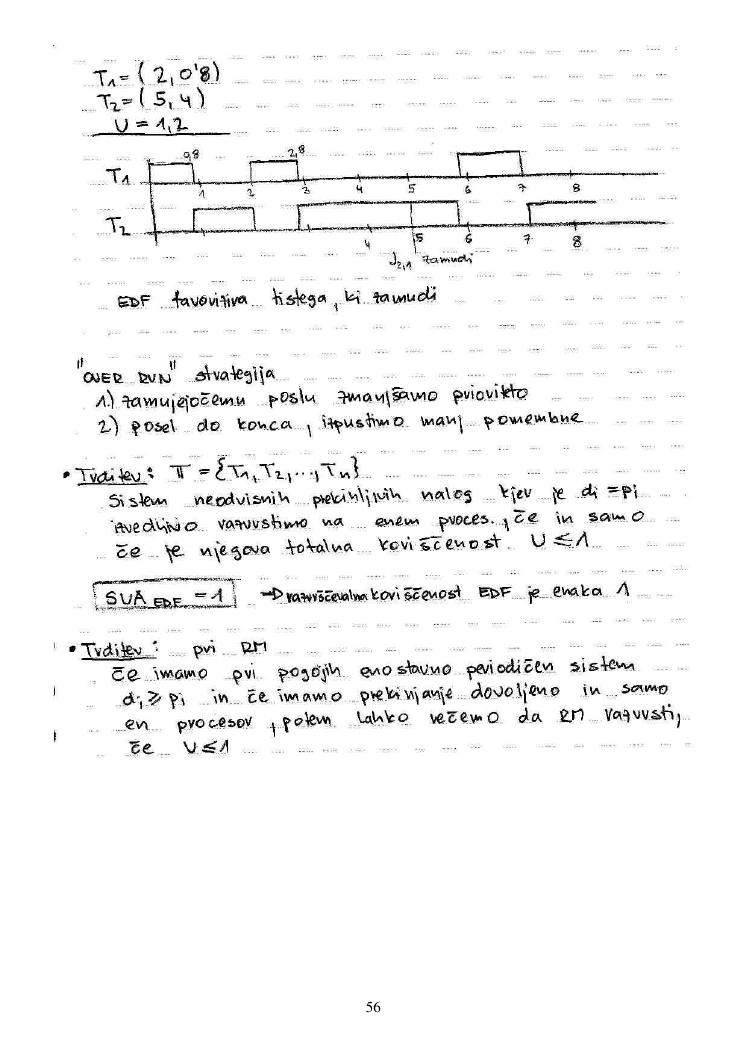 T1 = ( 2, 0'8)
T2 = ( 5, 4 )
U = 1,2
0,8 2,8
T1 1 2 3 4 5 6 7 8
T2 4 5 6 7 8
J2,1 zamudi
EDF favorizira tistega, ki zamudi
"OVER RUN" strategija
1.) zamujejočemu poslu zmanjšamo prioriteto
2) posel do konca, izpustimo manj pomembne
• Trditev: T = {T1, T2, ..., Tn}
Sistem neodvisnih prekinljivih nalog kjer je di = pi
izvedljivo razvrstimo na enem proces., če in samo
če je njegova totalna koriščenost U ≤ 1
SUA EDF = 1 → razvrščevalna koriščenost EDF je enaka 1
• Trditev: pri RM
če imamo pri pogojih enostavno periodičen sistem
di ≥ pi in če imamo prekinjanje dovoljeno in samo
en procesor, potem lahko rečemo da RM razvrsti,
če U ≤ 1
56